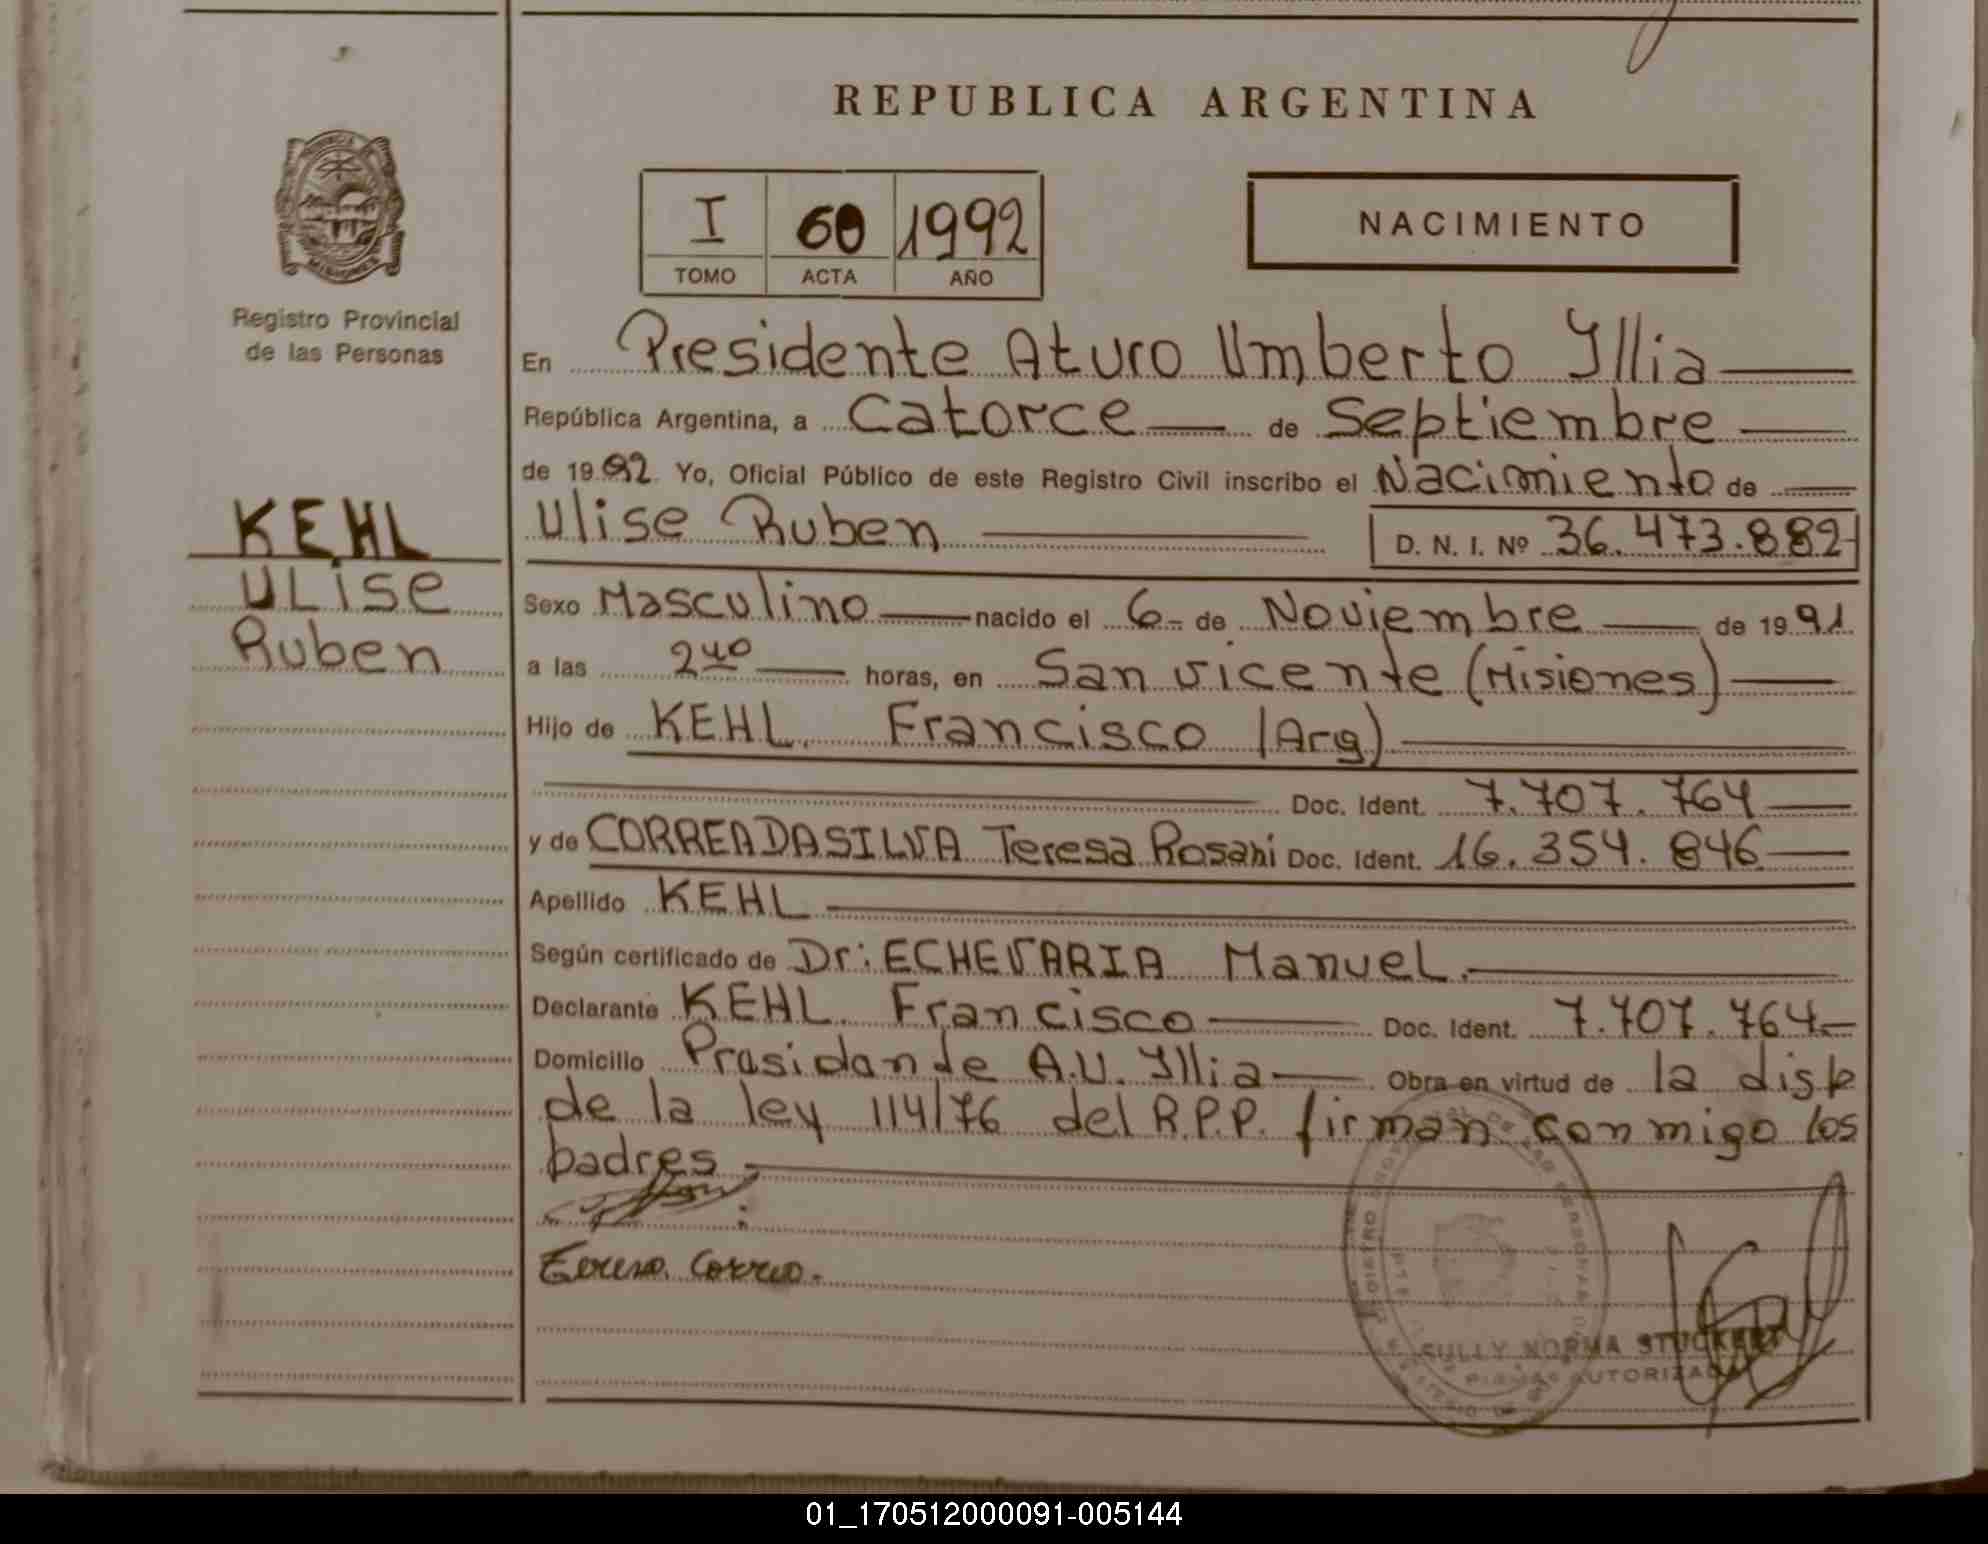 REPUBLICA ARGENTINA
PROVINCIA DE
MISIONES
Registro Provincial
de las Personas
I 60 1992
TOMO ACTA AÑO
NACIMIENTO
En Presidente Aturo Umberto Illia
República Argentina, a Catorce de Septiembre
de 1992 Yo, Oficial Público de este Registro Civil inscribo el Nacimiento de
Ulise Ruben D. N. I. Nº 36.473.882
KEHL
ULise
Ruben
Sexo Masculino nacido el 6 de Noviembre de 1991
a las 2 40 horas, en San vicente (Misiones)
Hijo de KEHL Francisco (Arg)
Doc. Ident. 7.707.764
y de CORREA DASILVA Teresa Rosani Doc. Ident. 16.354.846
Apellido KEHL
Según certificado de Dr: ECHEVARIA Manuel.
Declarante KEHL. Francisco Doc. Ident. 7.707.764
Domicilio Prasidante A.U. Illia Obra en virtud de la disp
de la ley 114/76 del R.P.P. firman conmigo los
padres
Teresa Correa.
SULLY NORMA STUCKERT
FIRMA AUTORIZADA
01_170512000091-005144